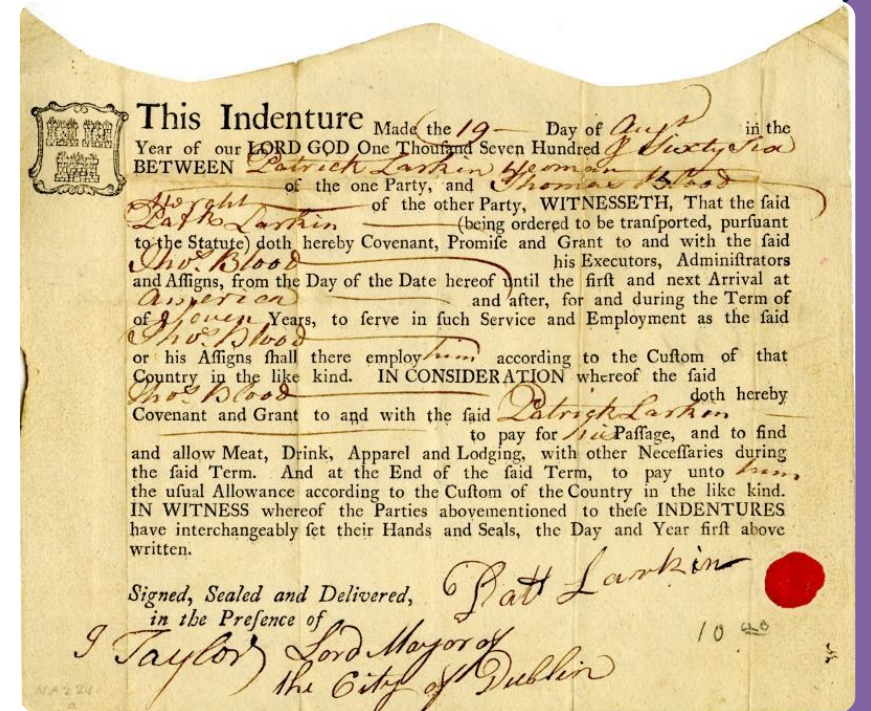 This Indenture Made the 19 Day of Augt in the
Year of our LORD GOD One Thouſand Seven Hundred & Sixty Six
BETWEEN Patrick Larkin Yeoman
of the one Party, and Thomas Blood
of the other Party, WITNESSETH, That the ſaid
Patk Larkin (being ordered to be tranſported, purſuant
to the Statute) doth hereby Covenant, Promiſe and Grant to and with the ſaid
Thos. Blood his Executors, Adminiſtrators
and Aſſigns, from the Day of the Date hereof until the firſt and next Arrival at
America and after, for and during the Term of
of Seven Years, to ſerve in ſuch Service and Employment as the ſaid
Thos. Blood
or his Aſſigns ſhall there employ him according to the Cuſtom of that
Country in the like kind. IN CONSIDERATION whereof the ſaid
Thos Blood doth hereby
Covenant and Grant to and with the ſaid Patrick Larkin
to pay for his Paſſage, and to find
and allow Meat, Drink, Apparel and Lodging, with other Neceſſaries during
the ſaid Term. And at the End of the ſaid Term, to pay unto him
the uſual Allowance according to the Cuſtom of the Country in the like kind.
IN WITNESS whereof the Parties abovementioned to theſe INDENTURES
have interchangeably ſet their Hands and Seals, the Day and Year firſt above
written.
Patt Larkin
Signed, Sealed and Delivered,
in the Preſence of
10
J Taylor Lord Mayor of
the City of Dublin